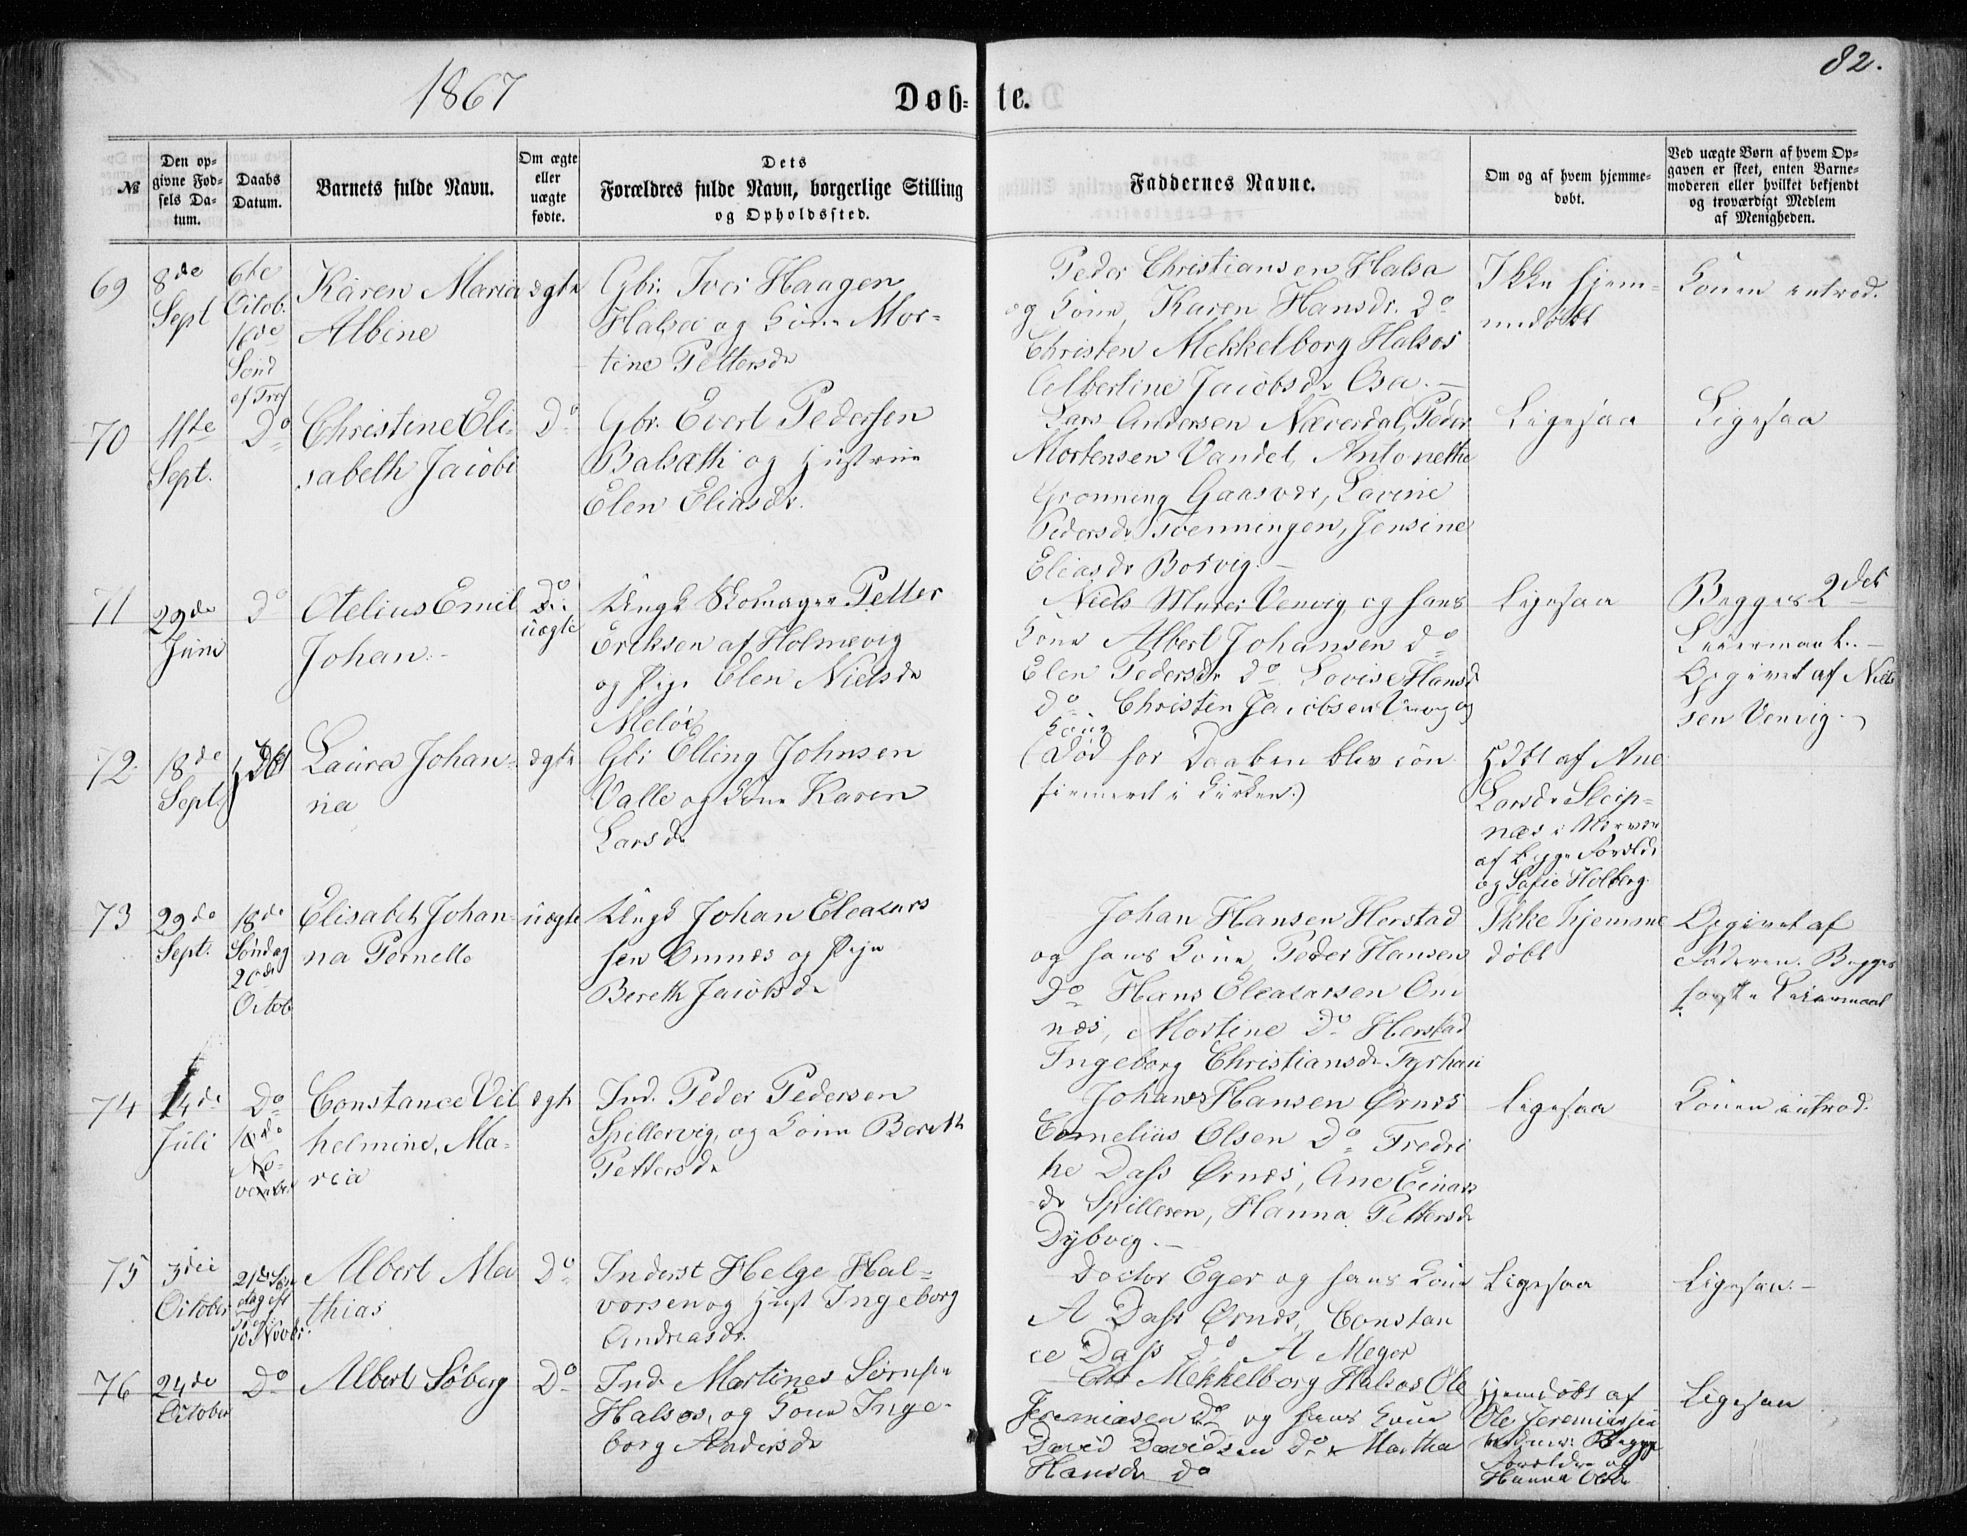 1867
Døbte.
82.
№
Den opgivne Fødsels Datum.
Daabs Datum.
Barnets fulde Navn.
Om ægte eller uægte fødte.
Dets Forældres fulde Navn, borgerlige Stilling og Opholdssted.
Faddernes Navne.
Om og af hvem hjemmedøbt.
Ved uægte Børn af hvem Opgaven er skeet, enten Barnemoderen eller hvilket bekjendt og troværdigt Medlem af Menigheden.
69
8de Sept
6te Octob.
16de Sønd
ef Tref
Karen Maria
Albine
ægte
Gbr. Iver Haagen
Halsa og Kone Mor-
tine Pettersdr
Peder Christiansen Halsa
og Kone, Karen Hansdr. Do
Christen Mekkelborg Halsos
Albertine Jacobsdr Osa.
Ikke hjem-
medøbt
Konen introd.
70
11te
Sept.
Do
Christine Eli-
sabeth Jacobi
Do
Gbr. Evert Pedersen
Balsæth og Hustrue
Elen Eliasdr.
Lars Andersen Næverdal, Peder
Mortensen Vandet, Antonette
Grønning Gaasvær, Lavine
Pedersdr Tvenningen, Jensine
Eliasdr Bosvig.
Ligesaa
Ligesaa
71
29de
Juni
Do
Otelius Emil
Johan
uægte
Ungk Skomager Petter
Eriksen af Holmevig
og Pige Elen Nielsdr
Meløe
Niels Murer Venvig og hans
Kone Albert Johansen do
Elen Pedersdr do Lovise Hansd
do Christen Jacobsen Venvig og
Kone
Ligesaa
Begges 2det
Leiermaal.
Opgivet af Niels
sen Venvig.
72
18de
Sept.
Hdbt
Laura Johan-
na
ægte
Gbr Elling Johnsen
Valle og Kone Karen
Larsdr
(Død før Daaben blev con
firmeret i Kirken.)
Hdbt af Ane
Larsdr Sleip-
næs i
af begge Foreldr
og Sofie Holberg.
73
29de
Sept.
18de
Søndag
20de
Octob
Elisabet Johan-
na Pernelle
uægte
Ungk Johan Eleazars
sen Omnes og Pige
Bereth Jacobsdr
Johan Hansen Horstad
og hans Kone, Peder Hansen
Do Hans Eleazarsen Om
nes, Mortine Do Horstad
Ingeborg Christiansdr Fyrhan
Ikke hjemme
døbt
Opgivet af
Faderen. Begges
første Leiermaal
74
14de
Juli
Do
10de
No-
vember
Constance Vil
helmine, Ma-
ria
ægte
Ind. Peder Pedersen
Spillervig, og Kone Bereth
Pettersdr
Johan Hansen Ørnes
Cornelius Olsen Do Fredri
ke Dass Ørnes, Ane Einars
dr Spilleren, Hanna Pettersdr
Dybvig.
Ligesaa
Konen introd.
75
3die
October
21de Søn
dag eft
10 Novbr.
Albert Ma
thias
Do
Inderst Helge Hal-
vorsen og Hust Ingeborg
Andreasdr.
Doctor Eger og hans Kone
A Dass Ørnes, Constan
ce Dass do A Meyer
Ligesaa
Ligesaa.
76
24de
October
Do
Albert Søberg
Do
Ind. Martines Sørnsen
Halsos, og Kone Inge-
borg Andersdr
Mekkelborg Halsos Ole
Jeremiasen Do og hans Kone
David Davidsen Do Martha
Hansdr do
Hjemdøbt af
Ole Jeremiassen
Begge
Foreldre og
Hanna Olsdr
Ligesaa